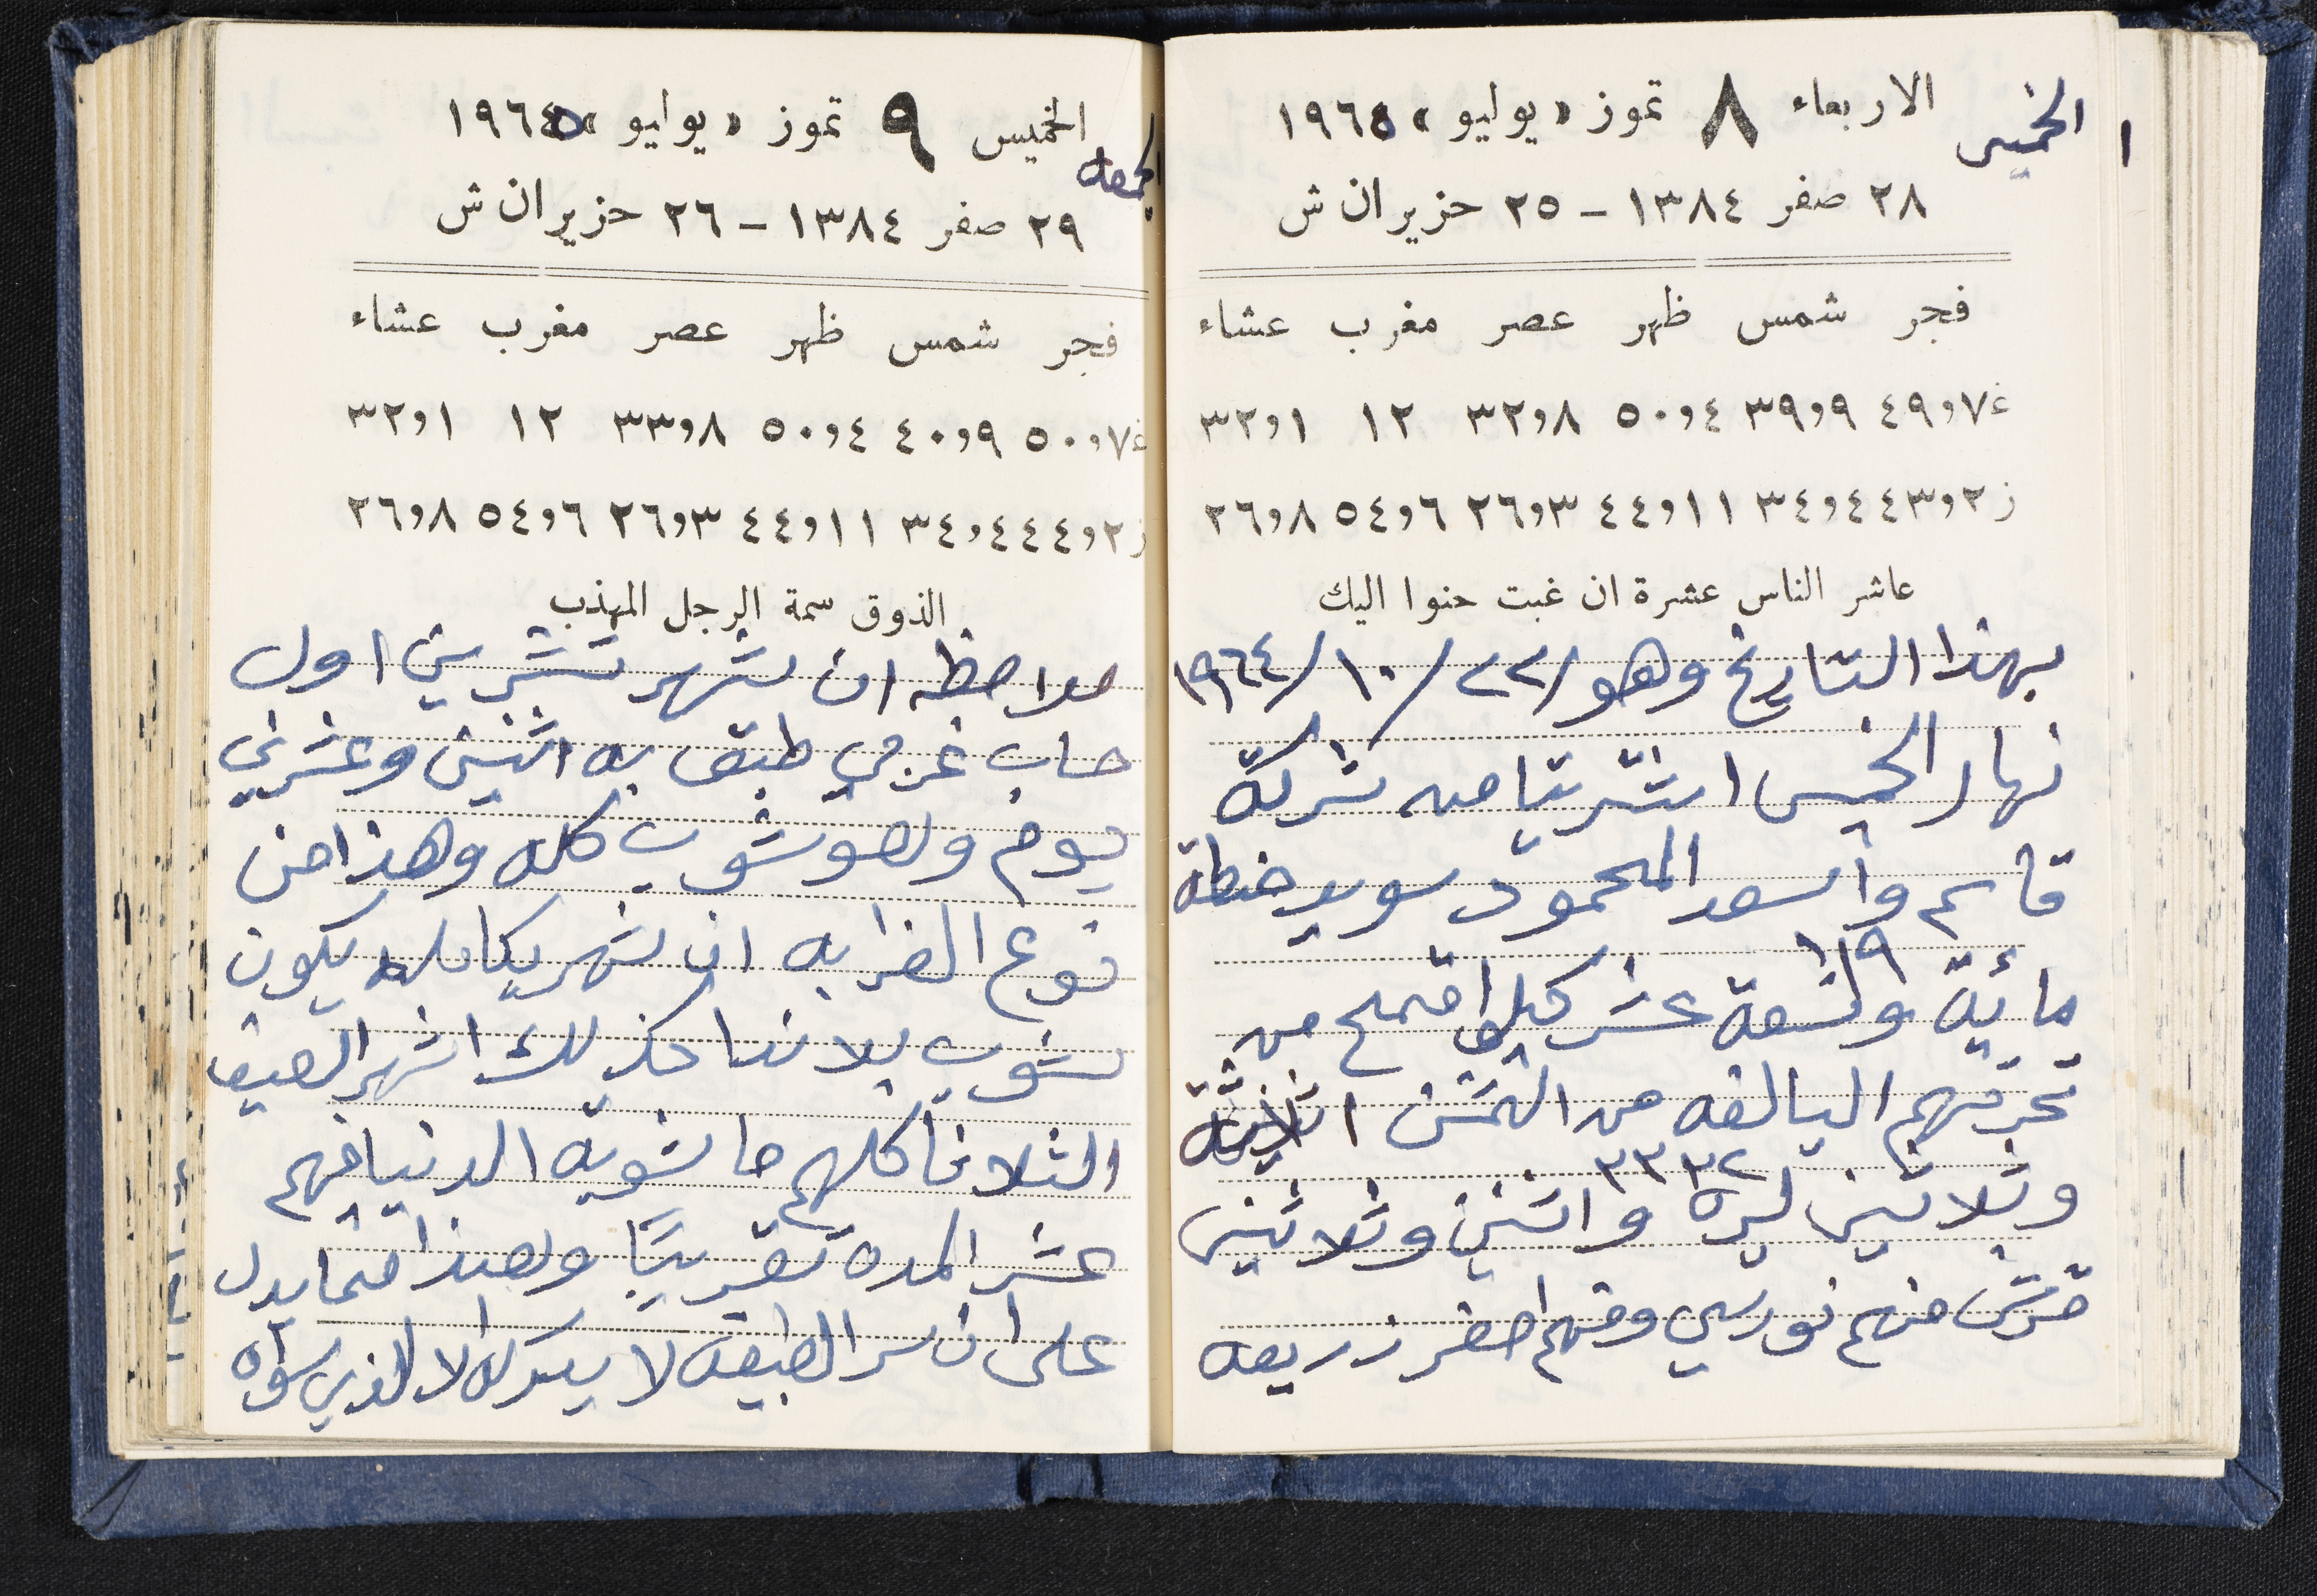 ١
الخميس
الاربعاء ٨ تموز «يوليو» ١٩٦٥
٢٨ صفر ١٣٨٤ - ٢٥ حزيران ش
فجر شمس ظهر عصر مغرب عشاء
غ ٧و٤٩ ٩و٣٩ ٤و٥٠ ٨و٣٢ ١٢ ١و٣٢
ز ٢و٤٣ ٤و٣٤ ١١و٤٤ ٣و٢٦ ٦و٥٤ ٨و٢٦
عاشر الناس عشرة ان غبت حنوا اليك
بهذا التاريخ وهو ٢٢/١٠/١٩٦٤
نهار الخميس اشترينا من شركة
قاسم وأسعد المحمود سويد حنطة
١١٩
مائية وتسعة عشر كيلو قمح من
تجرتهم البالغه من الثمن ثلاثة
وثلاثين ليره واثنين وثلاثين
٣٣ ٣٢
قرش منهم نورسي ومنهم اصفر زريعه
الجمعه
الخميس ٩ تموز «يوليو» ١٩٦٥
٢٩ صفر ١٣٨٤ - ٢٦ حزيران ش
فجر شمس ظهر عصر مغرب عشاء
غ ٧و٥٠ ٩و٤٠ ٤و٥٠ ٨و٣٣ ١٢ ١و٣٢
ز ٢و٤٤ ٤و٣٤ ١١و٤٤ ٣و٢٦ ٦و٥٤ ٨و٢٦
الذوق سمة الرجل المهذب
ملاحظه ان شهر تشرين اول
حساب غربي طبق به اثنين وعشرين
يوم وهو شوب كله وهذا من
نوع الغرابه ان شهر بكامله يكون
شوب بلا ندا كذلك اشهر الصيف
الثلاثا كلهم ما شوبه الدنيا فيهم
عشر المده تقريبًا وهذا مما يدل
على ان سر الطبيعه لا يدركه الا الذي سواه